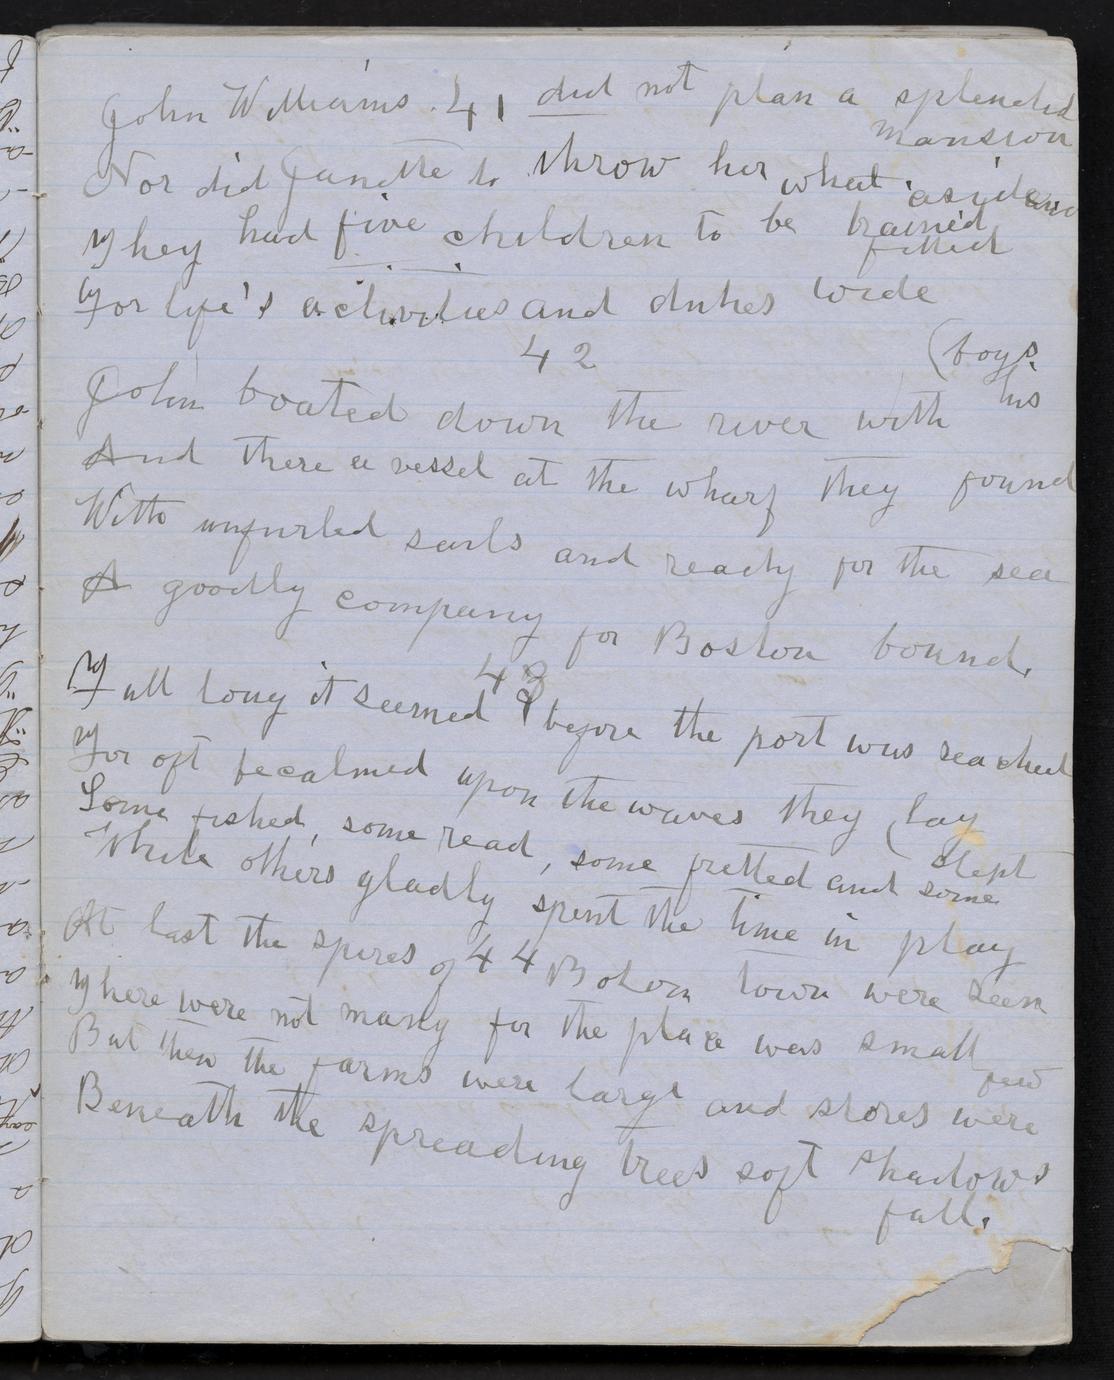 John Williams. 41 did not plan a splendid
mansion
Nor did Janette to throw her what aside
They had five children to be trained
fitted
For life's activities and duties wide
42
(boys.
John boated down the river with his
And there a vessel at the wharf they found
With unfurled sails and ready for the sea
A goodly company for Boston bound.
43
Full long it seemed before the port was reached
For oft becalmed upon the waves they lay
Some fished, some read, some fretted and some (slept
While others gladly spent the time in play
44
At last the spires of Boston town were seen
There were not many for the place was small
But then the farms were large and stores were few
Beneath the spreading trees soft shadows
fall.